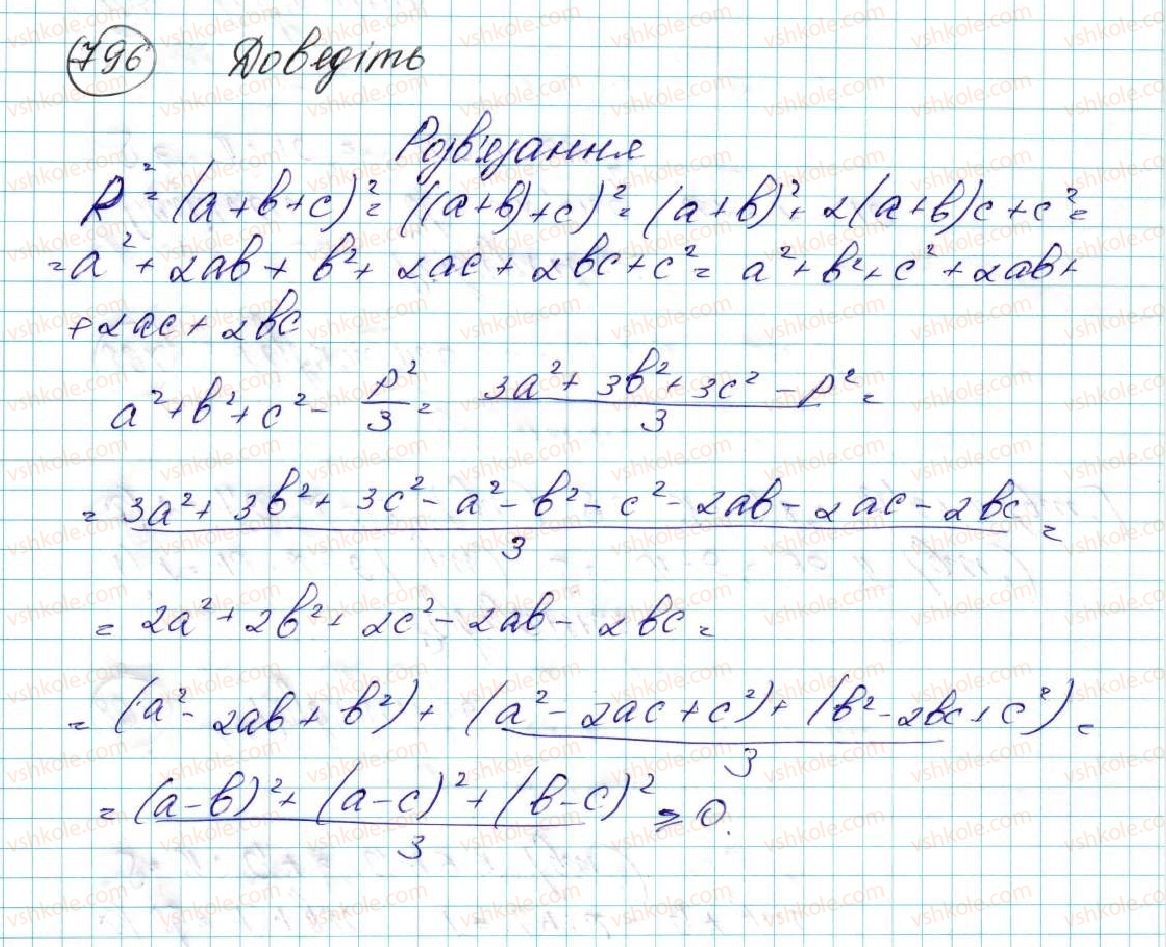 796 Доведіть
Розв'язання
P² = (a+b+c)² = ((a+b)+c)² = (a+b)² + 2(a+b)c + c² =
= a² + 2ab + b² + 2ac + 2bc + c² = a² + b² + c² + 2ab +
+ 2ac + 2bc
a² + b² + c² - P²/3 = (3a² + 3b² + 3c² - P²)/3 =
= (3a² + 3b² + 3c² - a² - b² - c² - 2ab - 2ac - 2bc)/3 =
= 2a² + 2b² + 2c² - 2ab - 2bc =
= ((a² - 2ab + b²) + (a² - 2ac + c²) + (b² - 2bc + c²))/3 =
= ((a-b)² + (a-c)² + (b-c)²)/3 ≥ 0.